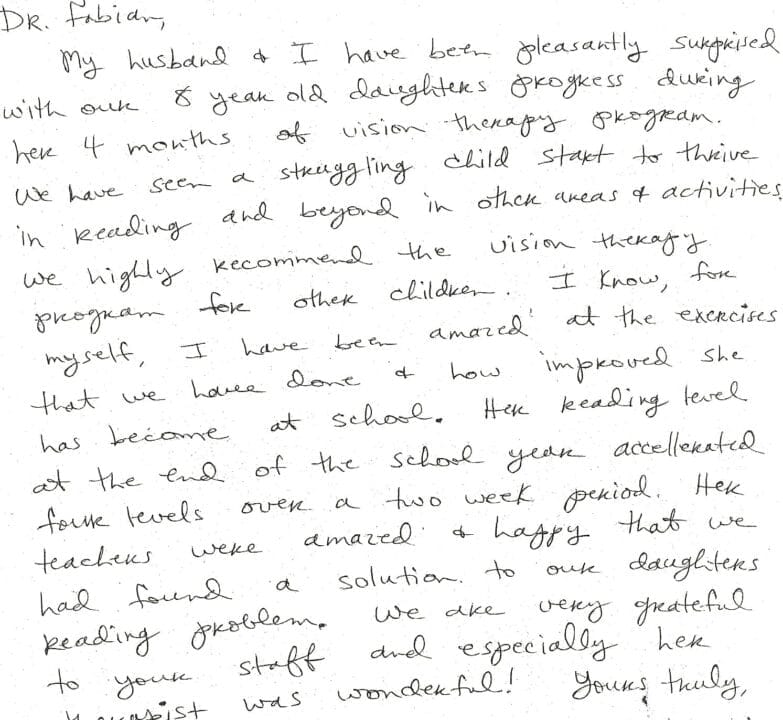 DR. Fabian,
My husband & I have been pleasantly surprised
with our 8 year old daughters progress during
her 4 months of vision therapy program.
We have seen a struggling child start to thrive
in reading and beyond in other areas & activities.
We highly recommend the vision therapy
program for other children. I know, for
myself, I have been amazed at the exercises
that we have done & how improved she
has become at school. Her reading level
at the end of the school year accellerated
four levels over a two week period. Her
teachers were amazed & happy that we
had found a solution to our daughters
reading problem. We are very grateful
to your staff and especially her
was wonderful! Yours truly,